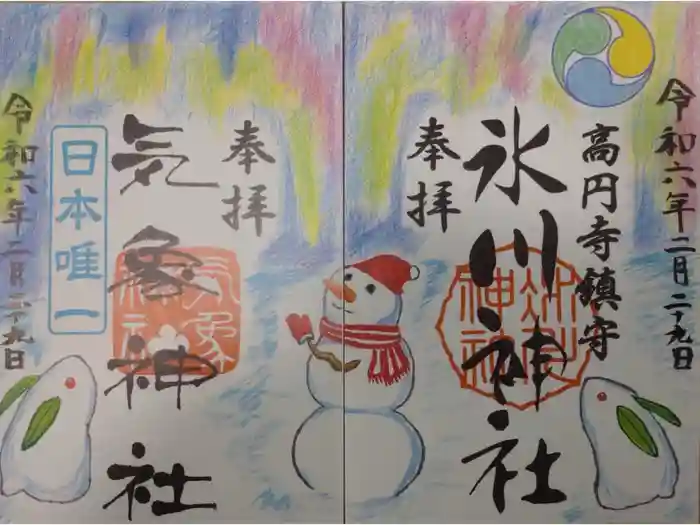 令和六年二月二十九日
高円寺鎮守
氷川神社
奉拝
氷川神社
奉拝
気象神社
気象神社
日本唯一
令和六年二月二十九日